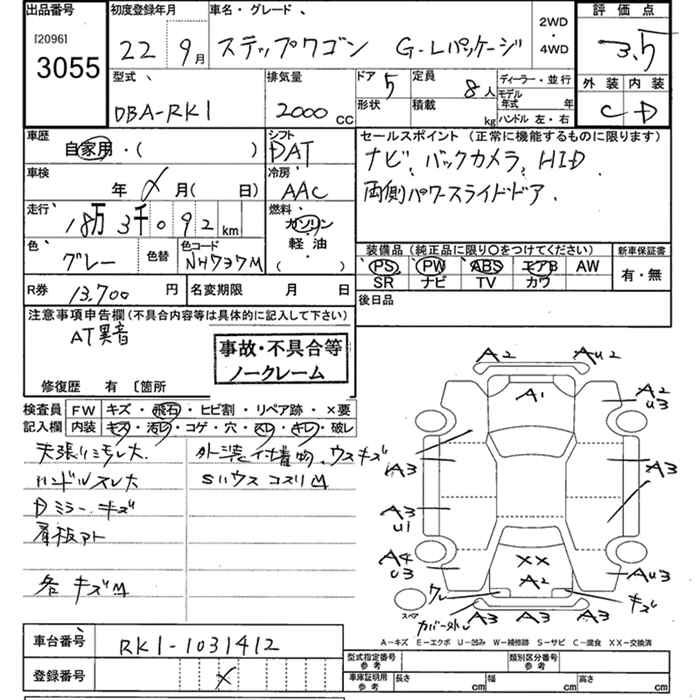 出品番号 初度登録年月 車名・グレード、 評価点
[2096]
3055
22 9月 ステップワゴン G・Lパッケージ 2WD・4WD 3.5
型式 排気量 ドア 5 定員 8人 ディーラー・並行 外装 内装
モデル年式 年
DBA-RK1 2000cc 形状 積載 kg ハンドル 左・右 C D
車歴 シフト セールスポイント (正常に機能するものに限ります)
自家用・( ) DAT ナビ、バックカメラ、HID
車検 冷房 両側パワースライドドア.
年 月(日) AAC
走行 燃料
18万3千092km ガソリン
軽・油
( )
色 グレー 色替 色コード NH737M
装備品(純正品に限り○をつけてください) 新車保証書
PS PW ABS エアB AW 有・無
SR ナビ TV カワ
R券 13,700円 名変期限 月 日 後日品
注意事項申告欄(不具合内容等は具体的に記入して下さい)
AT異音
事故・不具合等
ノークレーム
修復歴 有 〔箇所
検査員 FW キズ・飛石・ヒビ割・リペア跡・×要
記入欄 内装 キズ・汚レ・コゲ・穴・スレ・キレ・破レ
天張リヨゴレ大 外装付着物、ウスキズ
ハンドルスレ大 Sハウスコスリ有
Dミラーキズ
看板アト
各キズ有
A2 AU2
A1 A2 U3
A3 A3
A3 U1 A3
A4 U3 XX AU3
A2
ワレ キズ
スペア カバー外レ A3 A3 A3
A-キズ E-エクボ U-凹み W-補修跡 S-サビ C-腐食 XX-交換済
車台番号 RK1-1031412
型式指定番号 参考 類別区分番号 参考
登録番号 車庫証明用 参考 長さ cm 幅 cm 高さ cm